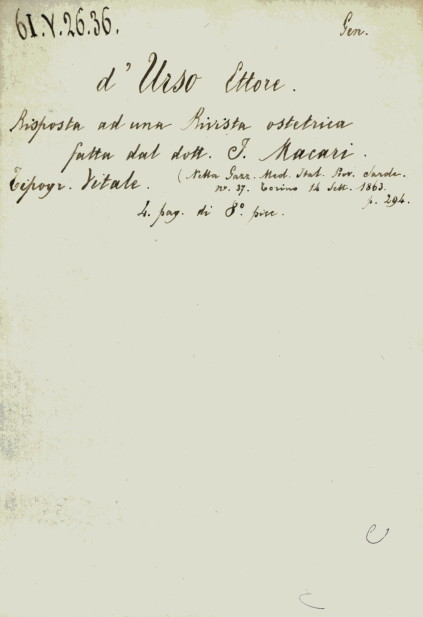 61.V.26.36.
Gen.
d' Urso Ettore.
Risposta ad una Rivista ostetrica
fatta dal dott. F. Macari.
Tipogr. Vitale. (Nella Gazz. Med. Ital. Prov. Sarde.
nr. 37. Torino 14 Sett. 1863.
p. 294.
4. pag. di 8° picc.